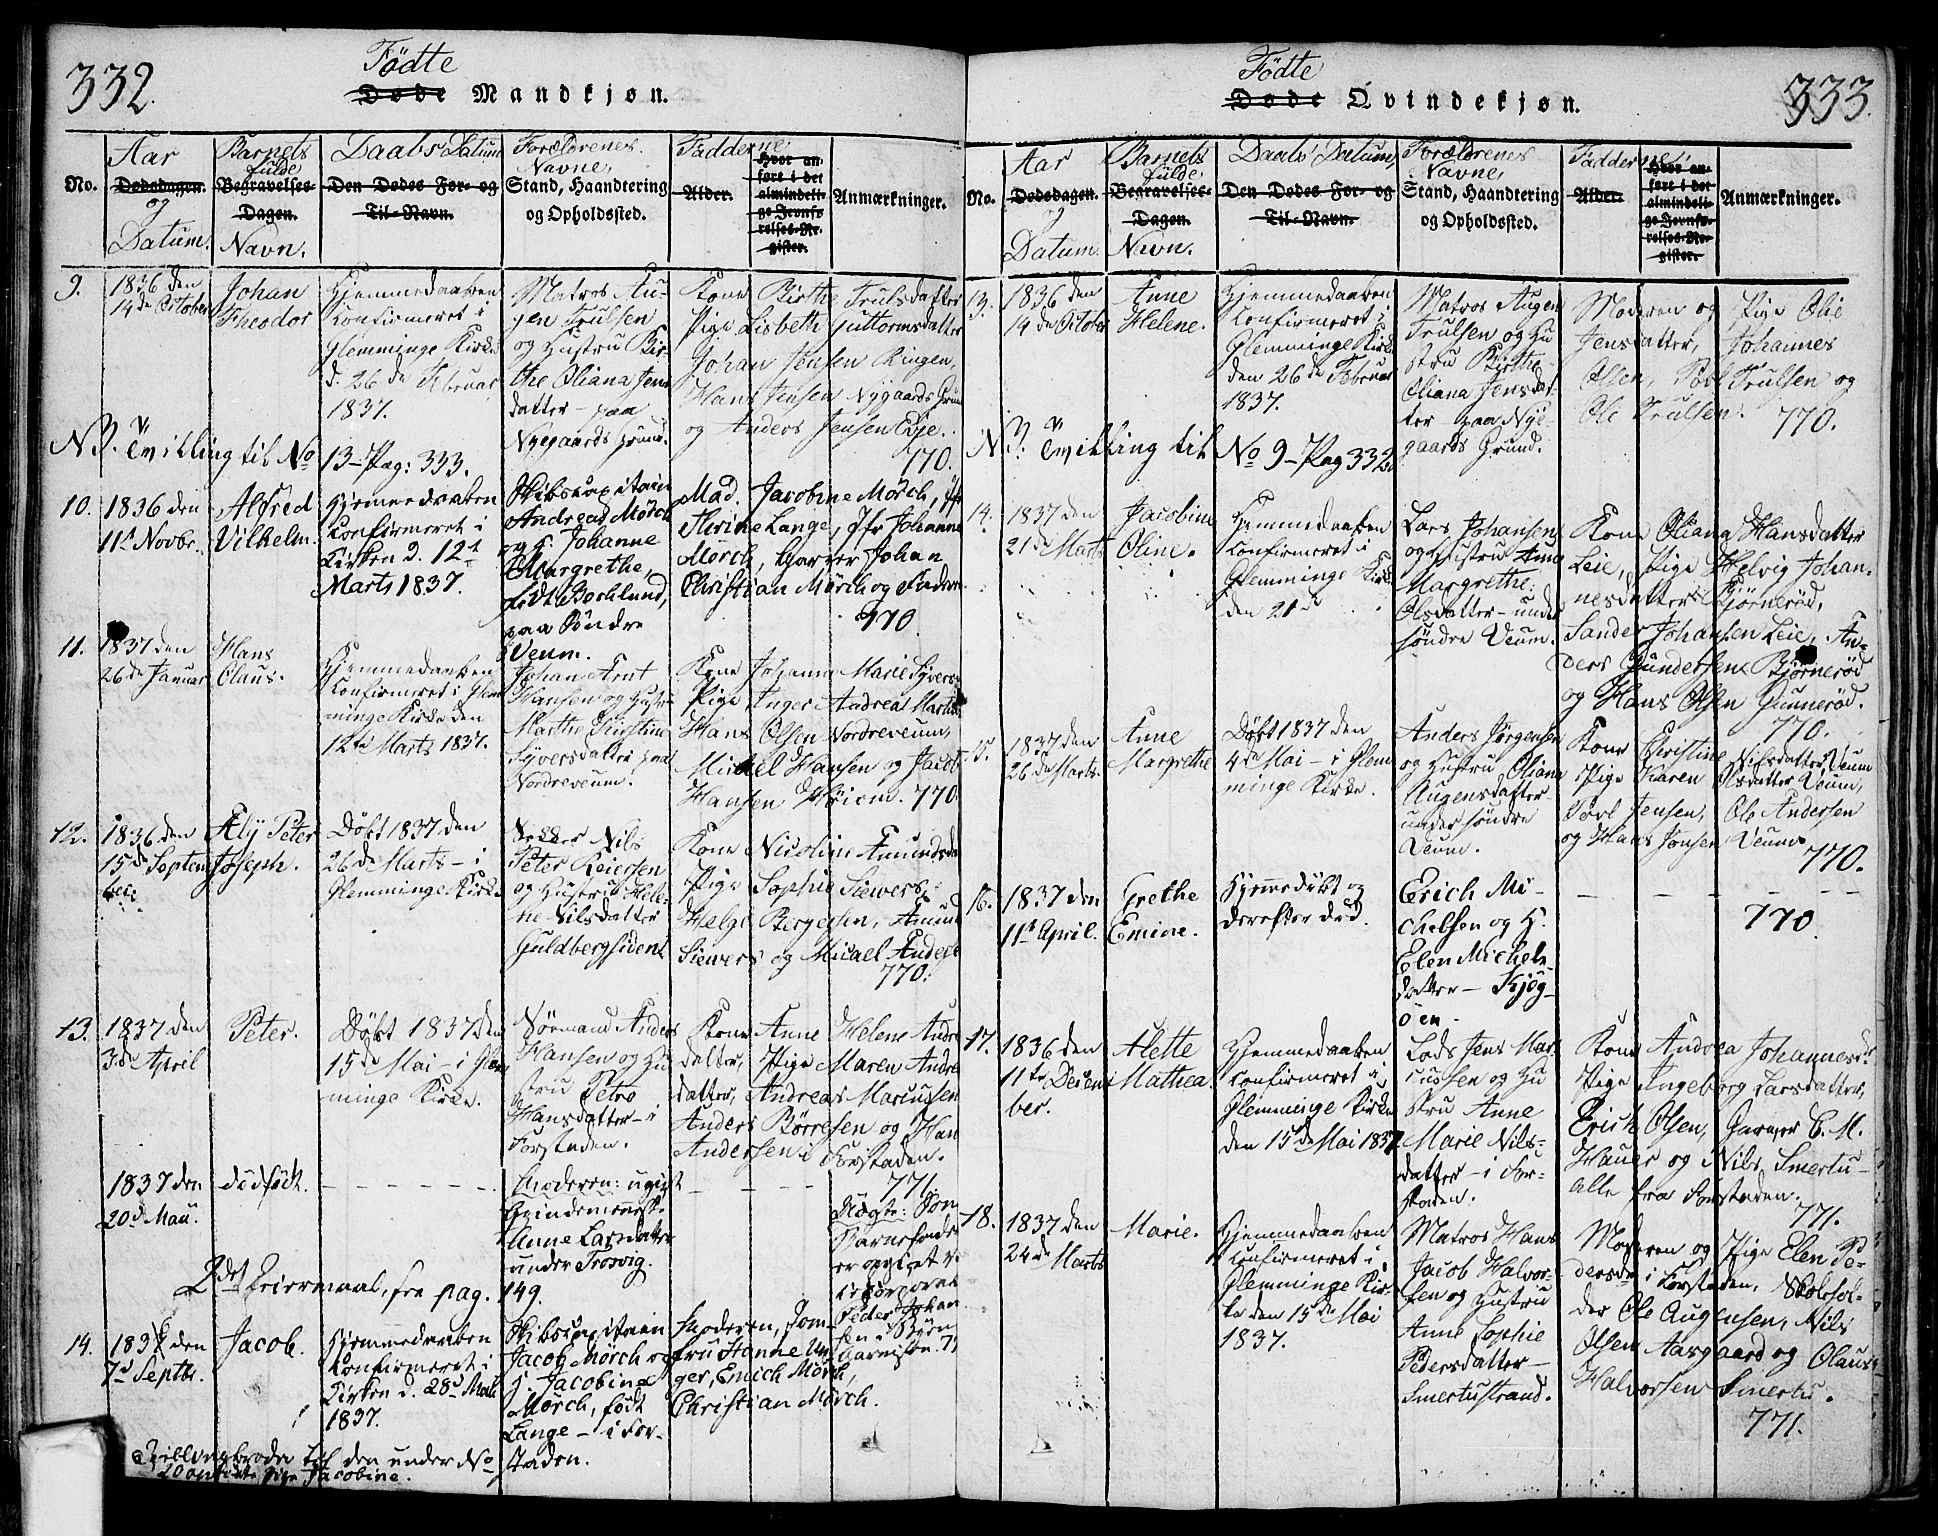 332.
Fødte
Døde Mandkjøn.
No.
Aar
Dødsdagen.
og
Datum.
Barnets
fulde
Begravelses-
Dagen.
Navn.
Daabs Datum
Den Dødes For- og
Til-Navn.
Forældrenes
Navne,
Stand, Haandtering
og Opholdssted.
Fadderne
Alder.
Hvor an-
ført i det
almindeli-
ge Jevnfø-
relses-Re-
gister.
Anmærkninger.
9.
1836 den
14de October
Johan
Theodor
Hjemmedøabten
Confirmeret i
Glemminge Kirke
d. 26de Februar
1837.
Matros Au-
gen Trulsen
og Hustru Bir-
the Oliana Jens
datter - paa
Nygaards Grund.
Kone Birthe Trulsdatter
Pige Lisbeth Guttormsdatter
Johan Jensen Ringen,
Hans Jensen Nygaards Grund
og Anders Jensen Evje.
770.
NB. Tvilling til No 13 - Pag: 333.
10.
1836 den
11te Novbr.
Alfred
Vilhelm.
Hjemmedaaben
Confirmeret i
Kirken d. 12te
Marts 1837.
Skibscapitain
Andreas Mörch
og H. Johanne
Margrethe,
født Bochlund,
paa Söndre
Veum.
Mad. Jacobine Mörch, Jfr
Thrine Lange, Jfr Johanne
Mörch, Garver Johan
Christian Mörch og Faderen
770
11.
1837 den
26de Januar
Hans
Claus.
Hjemmedaaben
Confirmeret i Glem
minge Kirke den
12te Marts 1837.
Johan Arnt
Hansen og Hustru
Marthe Kirstine
Syversdatter paa
Nordreveum.
Kone Johanne Marie Syvers
Pige Inger Andrea Martin
Hans Olsen Nordreveum,
Michael Hansen og Jacob
Hansen Høiem. 770.
12.
1836 den
15de Septem
ber.
Aly Peter
Joseph.
Döbt 1837 den
26de Marts - i
Glemminge Kirke
Nils
Peter Reiersen
og Hustru Hele-
ne Nilsdatter
Guldbergsiden
Kone Nicoline Amundsd
Pige Sophie Siewers,
Helge Bergesen, Amund
Siewers og Micael Anders
770.
13.
1837 den
3de April
Peter.
Döbt 1837 den
15de Mai - i Glem
minge Kirke.
Sørmand Anders
Hansen og Hu
stru Petro
Hansdatter - i
Forstaden.
Kone Anne Helene Andre
datter, Pige Maren Andre
datter, Andreas Marcussen
Anders Børresen og Han
Andersen i Forstaden.
771.
1837 den
20de Mai.
dødfødt.
Moderen: ugivt
Qvindemennesk
Anne Larsdatter
under Trosvig.
2det Leiermaal, fra pag. 149.
Peder Johan
sen
14.
1837 den
7de Septbr.
Jacob.
Hjemmedaaben
Konfirmeret i
Kirken d. 28de Mai
1837.
Skibscapitain
Jacob Mörch og
H. Jacobine
Mörch, født
Lange - i For-
staden.
Moderen, Jom-
fru Hanne Un-
ger, Emich Mörch,
Christian Mörch.
Tvillingbroder til den under No
20 anførte Pige Jacobine.
333.
Fødte
Døde Qvindekjøn.
No.
Aar
Dødsdagen.
og
Datum.
Barnets
fulde
Begravelses-
Dagen.
Navn.
Daabs Datum
Den Dødes For- og
Til-Navn.
Forældrenes
Navne,
Stand, Haandtering
og Opholdssted.
Fadderne,
Alder.
Hvor an-
ført i det
almindeli-
ge Jevnfø-
relses-Re-
gister.
Anmærkninger.
13.
1836 den
14de October
Anne
Helene.
Hjemmedaaben
Confirmeret i
Glemminge Kirke
den 26de Februar
1837.
Matros Augen
Trulsen og Hu
stru Birthe
Oliana Jensdat-
ter paa Nye
gaards Grund.
Moderen og Pige Olie
Jensdatter, Johannes
Olsen, Povl Trulsen og
Ole Trulsen.
770.
NB. Tvilling til No 9 - Pag 332
14.
1837 den
21de Marts
Jacobine
Oline.
Hjemmedaaben
Confirmeret i
Glemminge Kirke
den 21de
Lars Johansen
og Hustru Anne
Margrethe
Olsdatter - under
söndre Veum.
Kone Oliana Hansdatter
Leie, Pige Helvig Johan-
nesdatter Bjørnerød,
Sander Johansen Leie, An-
ders Gundersen Bjørnerød
og Hans Olsen Gunnerød.
770.
15.
1837 den
26de Marts.
Anne
Margrethe
Döbt 1837 den
4de Mai - i Glem
minge Kirke.
Anders Jørgensen
og Hustru Oliana
Augensdatter
under söndre
Veum.
Kone Christine Nilsdatter Veum
Pige Karen Olsdatter Veum,
Povl Jensen, Ole Andersen
og Hans Jonsen Veum
770.
16.
1837 den
11te April.
Grethe
Emine.
Hjemmedøbt og
derefter død.
Erich Mi-
chelsen og H.
Elen Michels-
datter - Kjøg-
öen.
770
17.
1836 den
11te Decem
ber.
Alette
Mathea.
Hjemmedaaben
Confirmeret i
Glemminge Kirke
den 15de Mai 1837
Lods Jens Mar-
cussen og Hu
stru Anne
Marie Nils-
datter - i For-
staden.
Kone Andrea Johannesdr
Pige Ingeborg Larsdatter,
Erich Olsen, Garver C. M.
Hauer og Nils Smertu -
alle fra Forstaden.
771.
18.
1837 den
24de Marts
Marie.
Hjemmedaaben
Confirmeret i
Glemminge Kir-
ke den 15de Mai
1837.
Matros Hans
Jacob Halvor-
sen og Hustru
Anne Sophie
Pedersdatter -
Smertustrand.
Moderen og Pige Elen Pe-
dersdr i Forstaden, Skolehol-
der Ole Augensen, Nils
Olsen Aasgaard og Olaus
Halvorsen Smertu.
771.